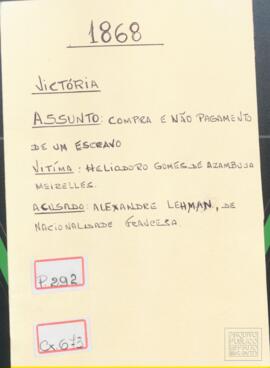 1868
VICTÓRIA
ASSUNTO: COMPRA E NÃO PAGAMENTO
DE UM ESCRAVO
VITIMA: HELIADORO GOMES DE AZAMBUJA
MEIRELLES.
ACUSADO: ALEXANDRE LEHMAN, DE
NACIONALIDADE FRANCESA.
P.292
Cx.673
ARQUIVO
PÚBLICO
ESTADO